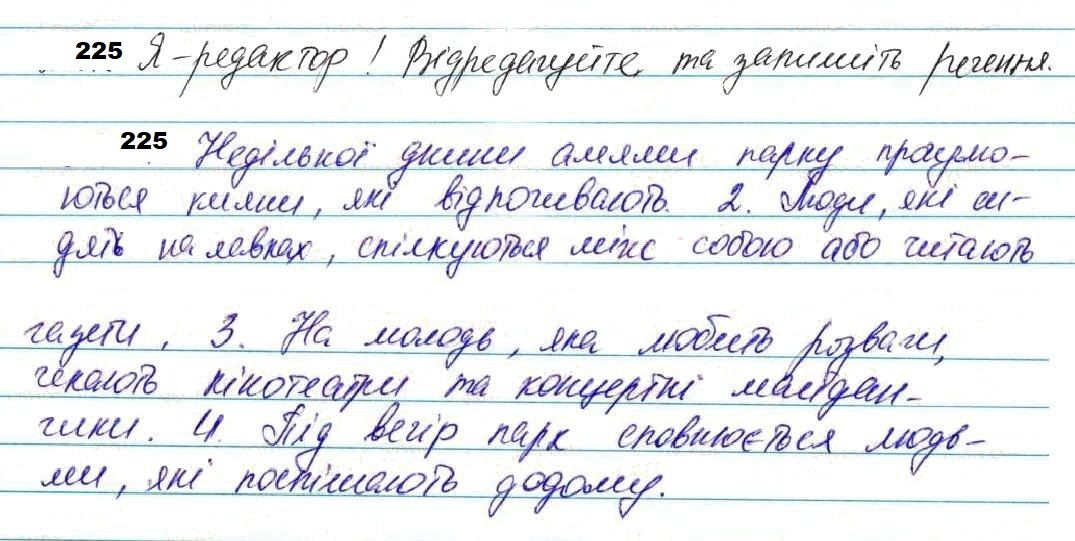 225 Я - редактор! Відредагуйте та запишіть речення.
225 Недільної днини алеями парку прогулю-
ються кияни, які відпочивають. 2. Люди, які си-
дять на лавках, спілкуються між собою або читають
газети, 3. На молодь, яка любить розваги,
чекають кінотеатри та концертні майдан-
чики. 4. Під вечір парк сповнюється людь-
ми, які поспішають додому.